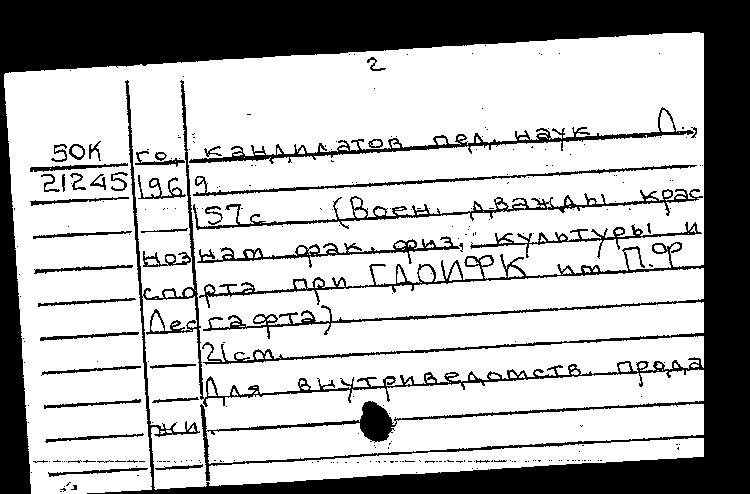 2
50К го, кандидатов пед. наук. Л.,
21245 1969.
157с (Воен. дважды крас
нознам. фак. физ. культуры и
спорта при ГДОИФК им. П.Ф
Лесгафта).
21см.
Для внутриведомств. прода
жи.